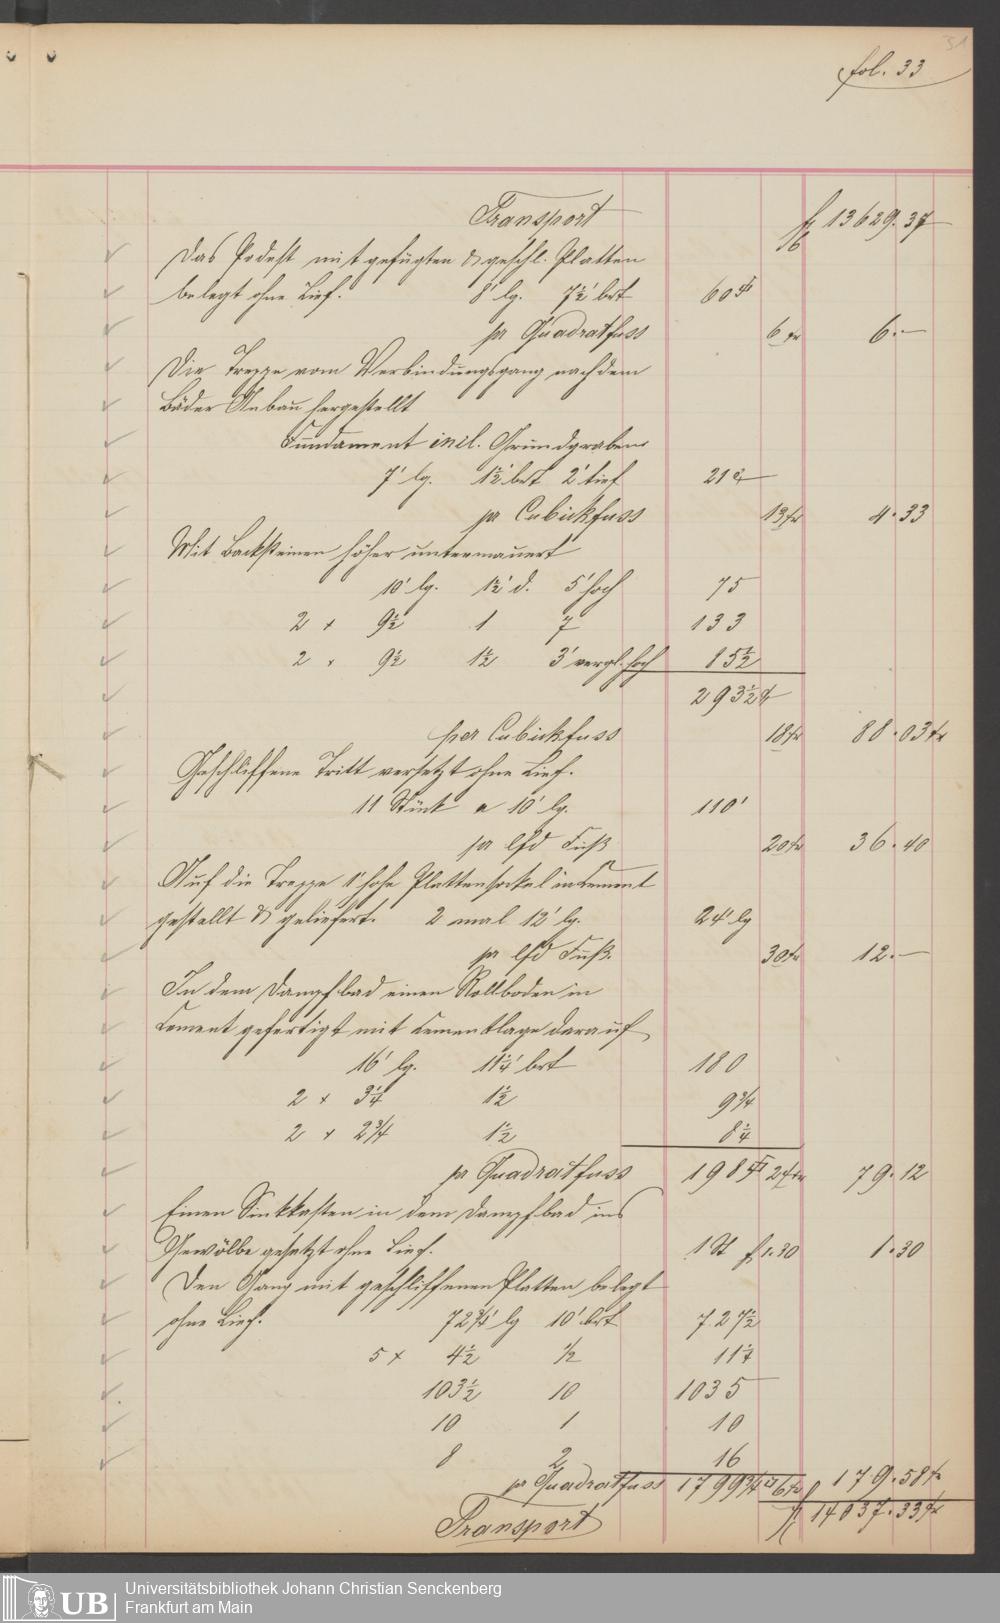 31
fol. 33
Transport fl 13629.37
Das Podest mit gefügten & geschl. Platten
belegt ohne Lief. 8' lg. 7½' brt 60 □'
pr Quadratfuss 6 xr 6.—
Die Treppe vom Verbindungsgang nach dem
Bäder Anbau hergestellt
Fundament incl. Grundgraben
7' lg. 1½' brt 2' tief 21 c'
pr Cubickfuss 13 xr 4.33
Mit Backsteinen höher untermauert
10' lg. 1½' d. 5' hoch 75
2 x 9½ 1 7 133
2 x 9½ 1½ 3' vergl. hoch 85½
293½ c'
per Cubickfuss 18 xr 88.03 xr
Geschliffene Tritt versetzt ohne Lief.
11 Stück a 10' lg. 110'
pr lfd Fuß 20 xr 36.40
Auf die Treppe 1' hohe Plattensockel in Cement
gestellt & geliefert. 2 mal 12' lg. 24' lg
pr lfd Fuß. 30 xr 12.—
In dem Dampfbad einen Rollboden in
Cement gefertigt mit Cementlage darauf
16' lg. 11¼' brt 180
2 x 3¼ 1½ 9¾
2 x 2¾ 1½ 8¼
pr Quadratfuss 198 □' 24 xr 79.12
Einen Sinkkasten in dem Dampfbad ins
Gewölbe gesetzt ohne Lief. 1 St fl 1.30 1.30
Den Gang mit geschliffenen Platten belegt
ohne Lief. 72¾' lg 10' brt 727½
5 x 4½ ½ 11¼
103½ 10 1035
10 1 10
8 2 16
pr Quadratfuss 1799¾ □' 6 xr fl 179.58 xr
Transport fl 14037.33 xr
UB Universitätsbibliothek Johann Christian Senckenberg
Frankfurt am Main